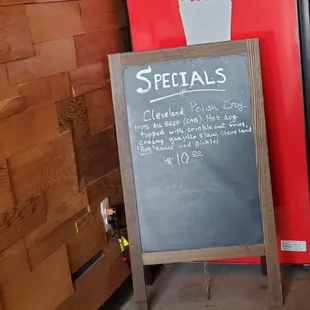 SPECIALS
Cleveland Polish Boy
100% ALL BEEF (CAB) Hot dog
topped with crinkle cut fries,
creamy guajillo slaw, Cleveland
Hot sauce and pickles
$10.00